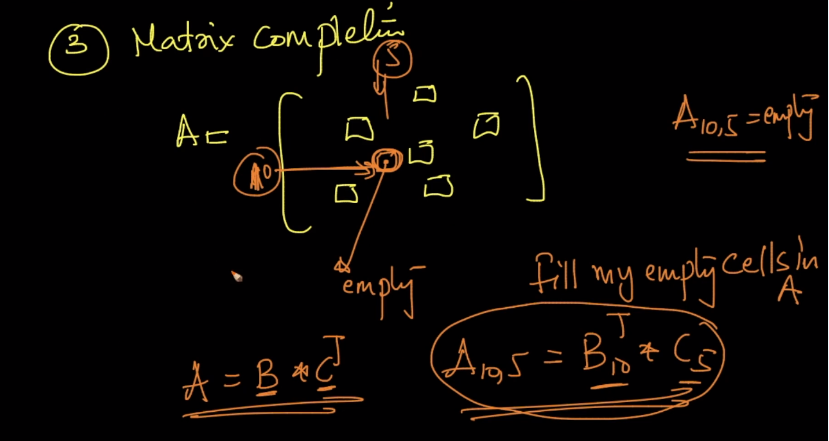 ③ Matrix completion
5
A =
A10,5 = empty
10
empty
fill my empty cells in
A
A = B * C^T
A10,5 = B10^T * C5